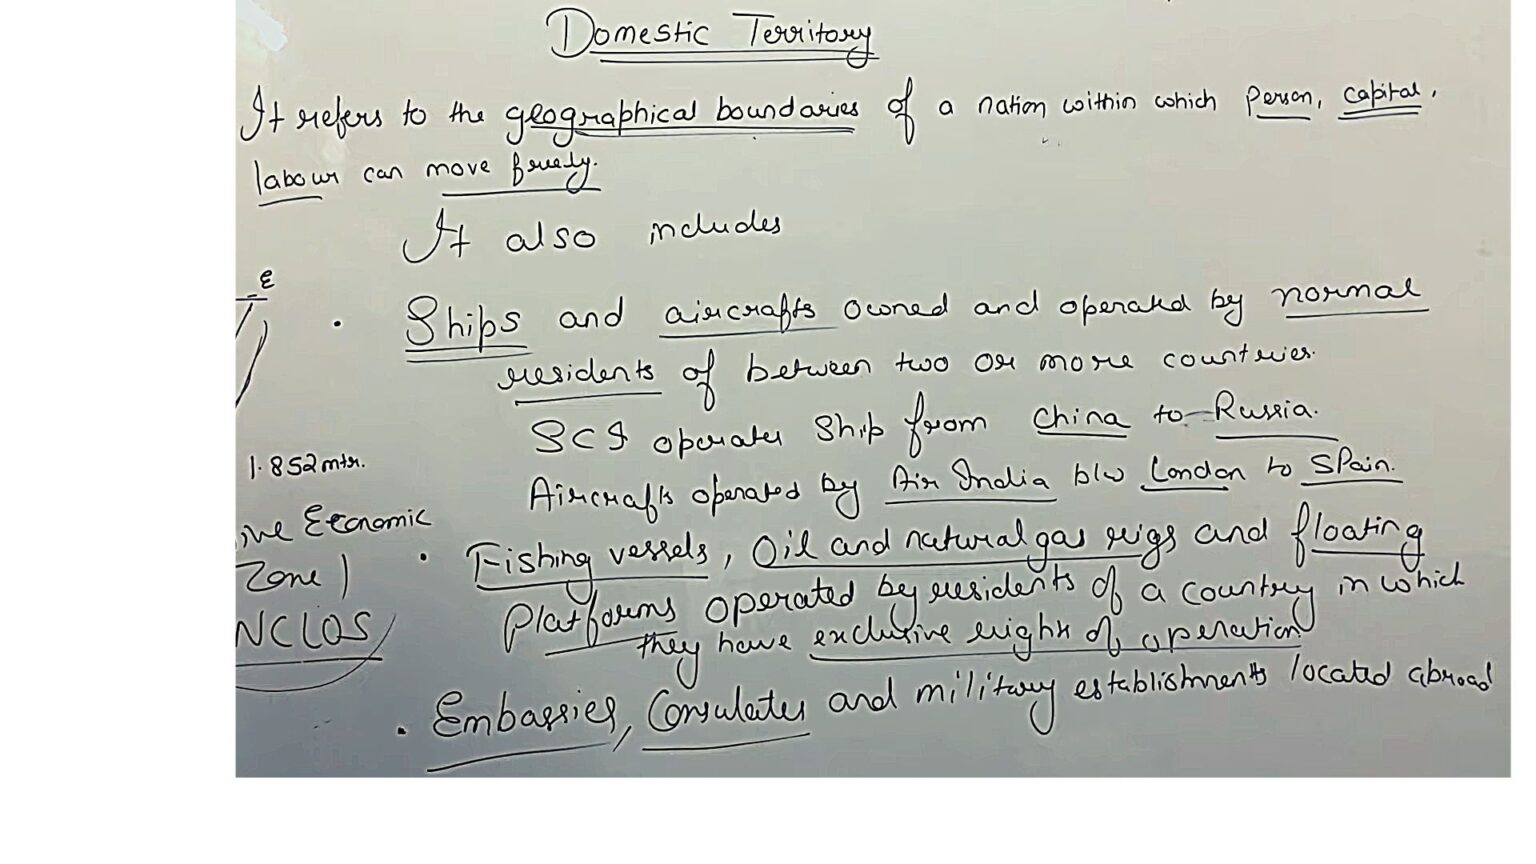 Domestic Territory
It refers to the geographical boundaries of a nation within which person, capital,
labour can move freely.
It also includes
E
• Ships and aircrafts owned and operated by normal
residents of between two or more countries.
SCI operates Ship from China to Russia.
1.852mtr.
Aircrafts operated by Air India b/w London to Spain.
ive Economic
Zone)
NCLOS
• Fishing vessels, Oil and natural gas rigs and floating
Platforms operated by residents of a country in which
they have exclusive right of operation
• Embassies, Consulates and military establishments located abroad